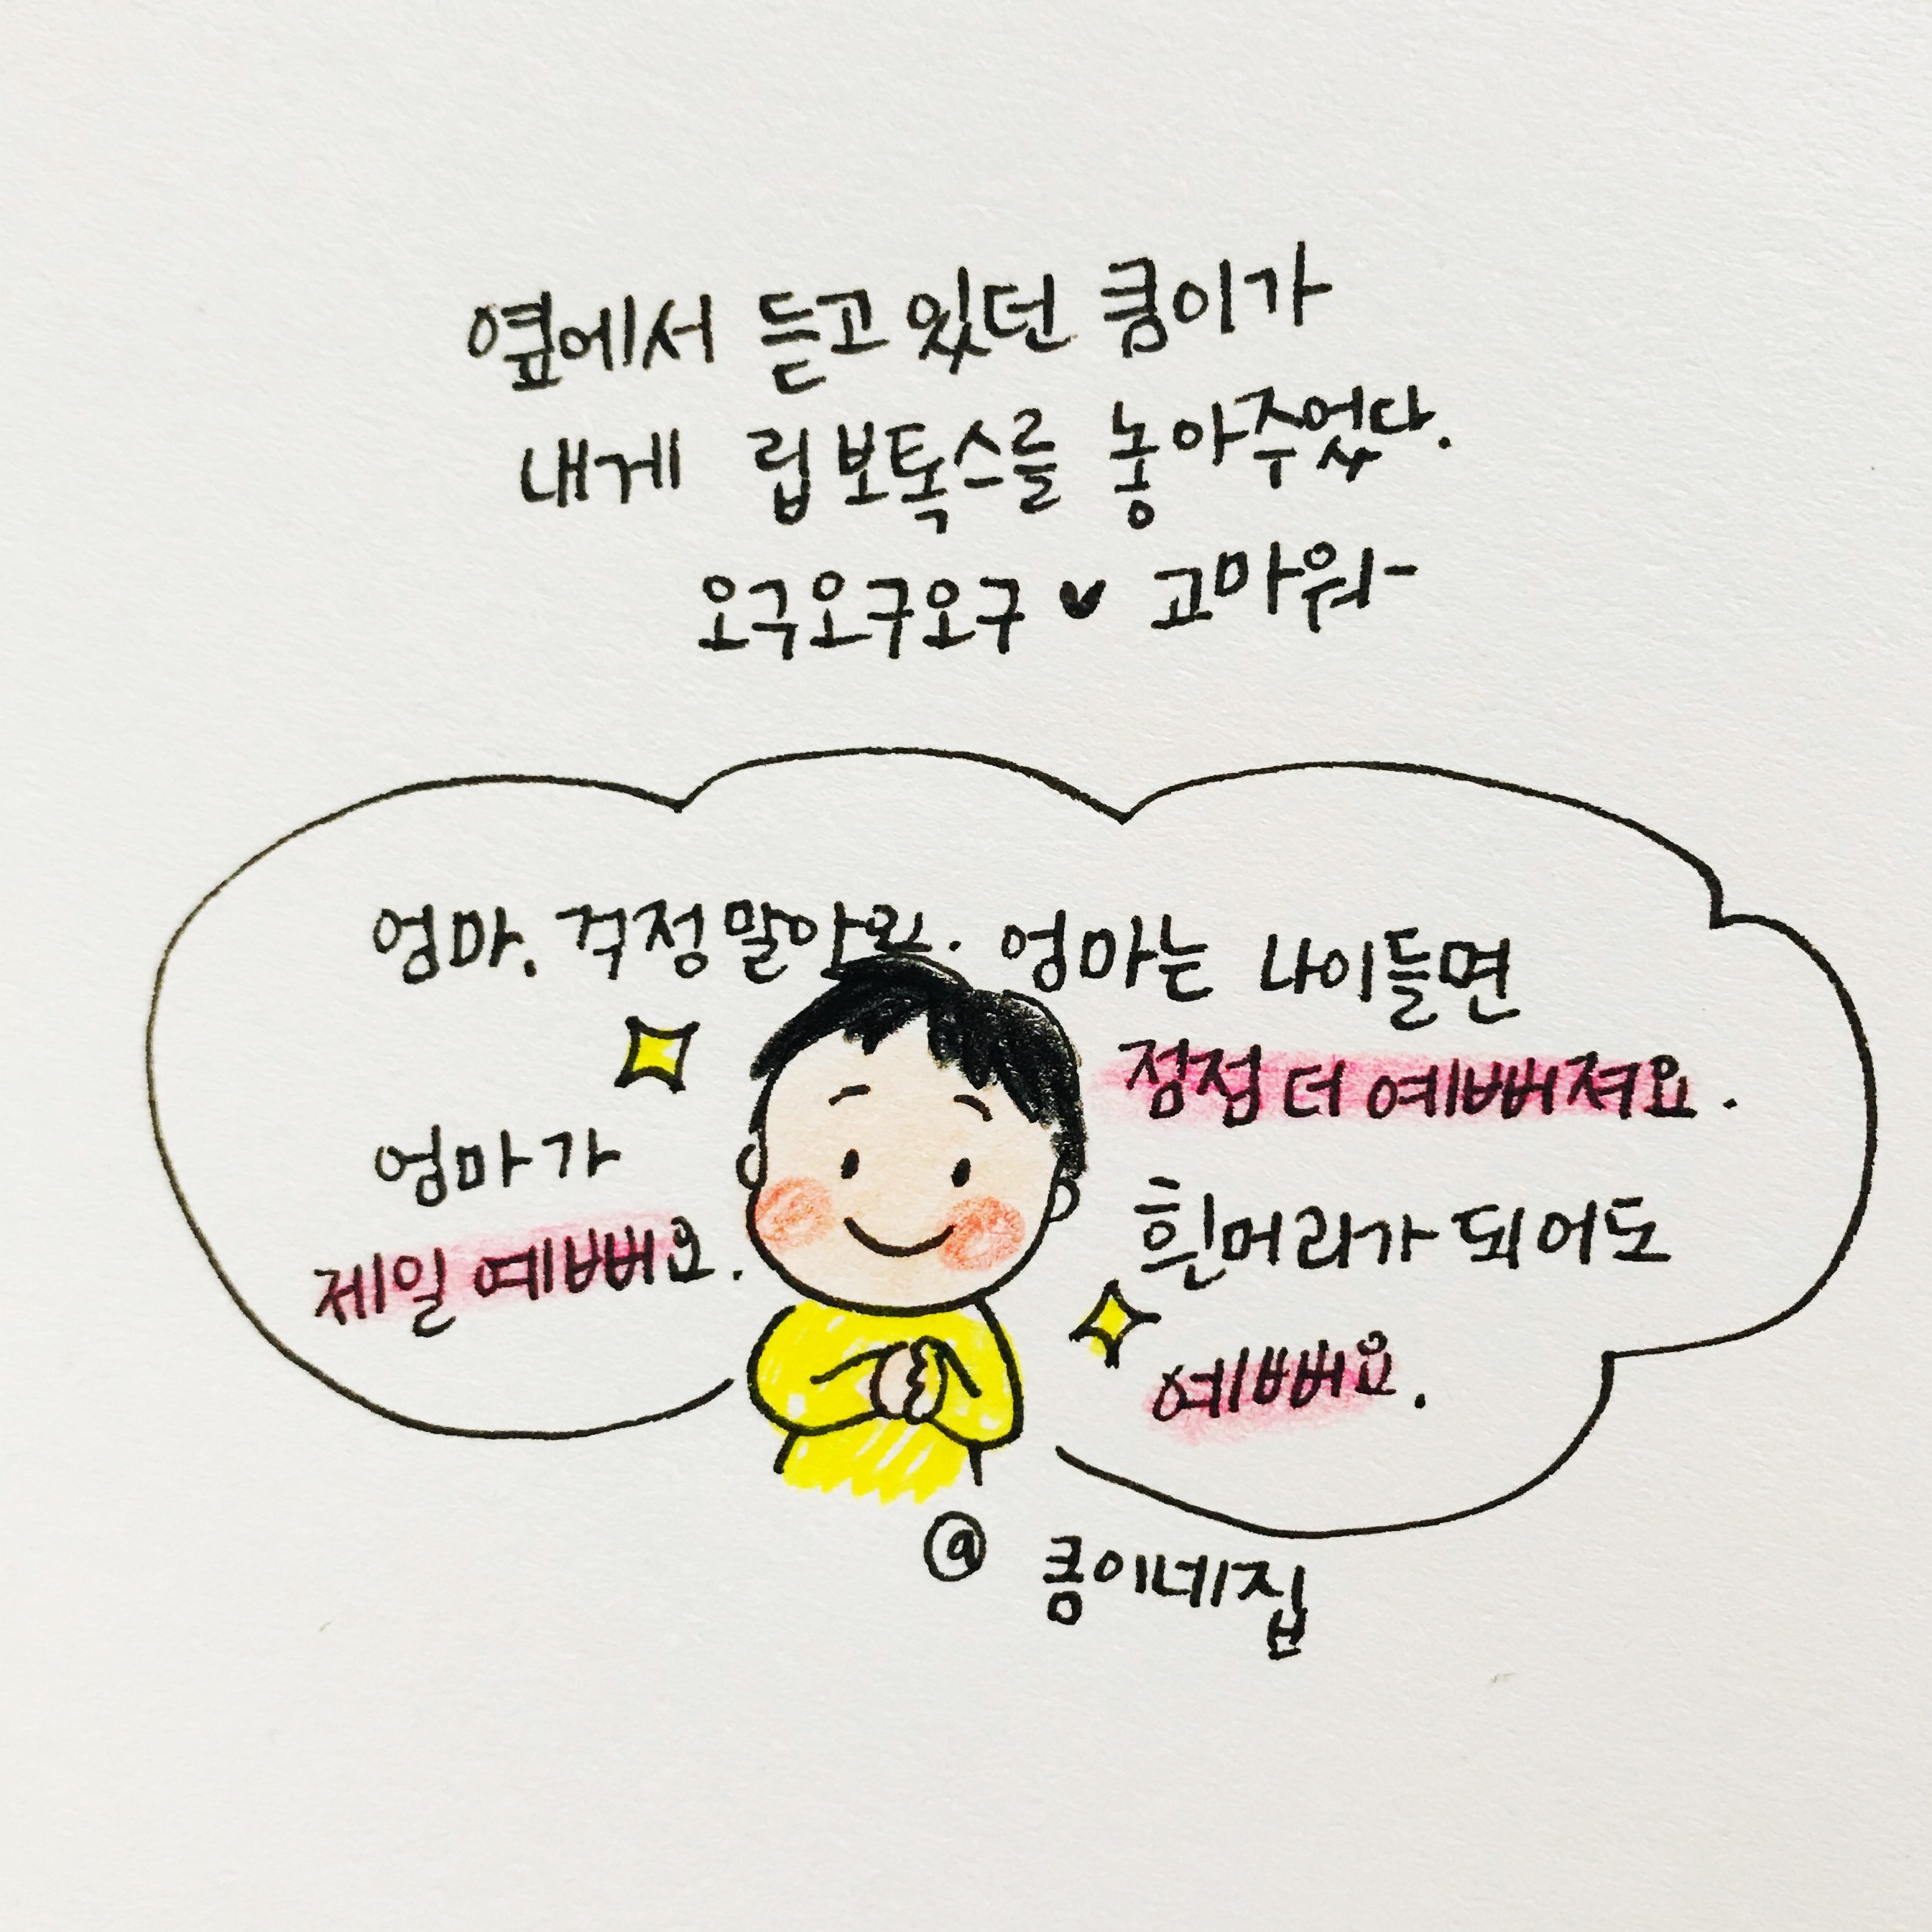 옆에서 듣고 있던 쿵이가
내게 립보톡스를 놓아주었다.
오구오구오구♥ 고마워-
엄마. 걱정말아요. 엄마는 나이들면
점점 더 예뻐져요.
엄마가
제일 예뻐요.
흰머리가 되어도
예뻐요.
@ 쿵이네집